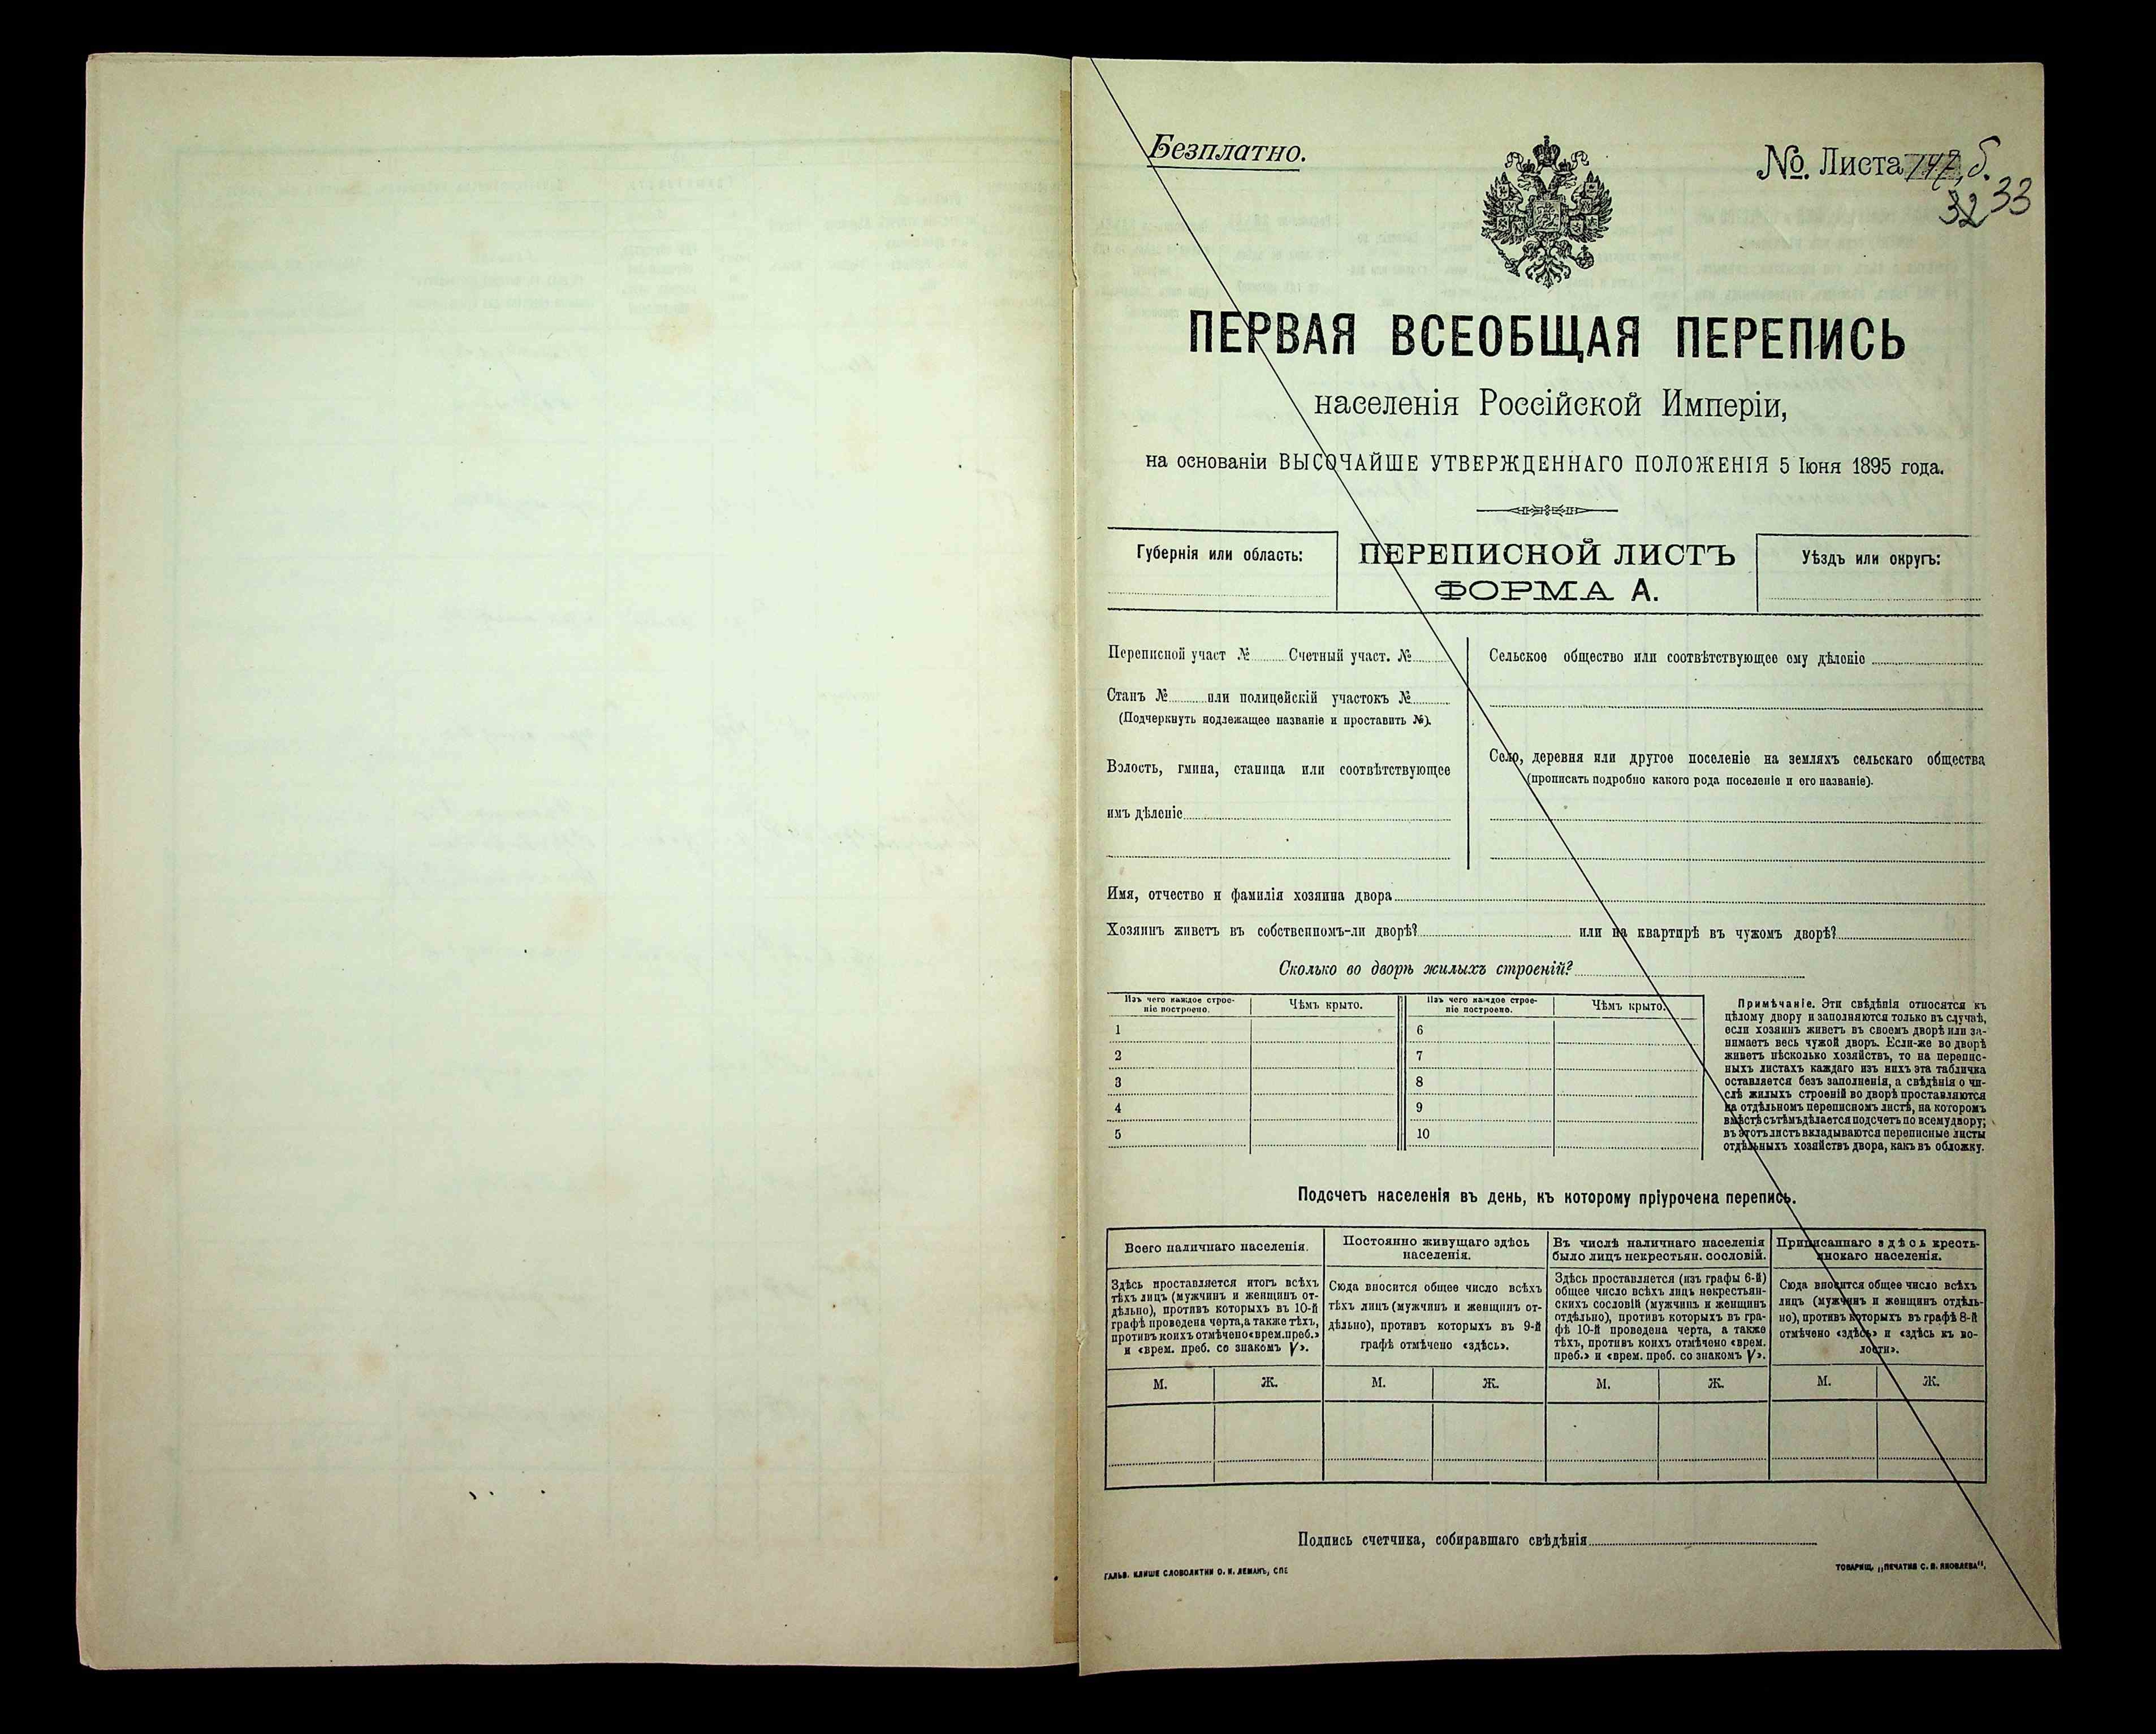 Безплатно.
№. Листа 147, б.
32 33
ПЕРВАЯ ВСЕОБЩАЯ ПЕРЕПИСЬ
населенія Россійской Имперіи,
на основаніи ВЫСОЧАЙШЕ УТВЕРЖДЕННАГО ПОЛОЖЕНІЯ 5 Іюня 1895 года.
Губернія или область:
ПЕРЕПИСНОЙ ЛИСТЪ
ФОРМА А.
Уѣздъ или округъ:
Переписной участ № Счетный участ. №
Станъ № или полицейскій участокъ №
(Подчеркнуть подлежащее названіе и проставить №).
Волость, гмина, станица или соотвѣтствующее
имъ дѣленіе
Сельское общество или соотвѣтствующее ему дѣленіе
Село, деревня или другое поселеніе на земляхъ сельскаго общества
(прописать подробно какого рода поселеніе и его названіе).
Имя, отчество и фамилія хозяина двора
Хозяинъ живетъ въ собственномъ-ли дворѣ? или на квартирѣ въ чужомъ дворѣ?
Сколько во дворѣ жилыхъ строеній?
Изъ чего каждое строе-
ніе построено.
Чѣмъ крыто.
Изъ чего каждое строе-
ніе построено.
Чѣмъ крыто.
1
2
3
4
5
6
7
8
9
10
Примѣчаніе. Эти свѣдѣнія относятся къ
цѣлому двору и заполняются только въ случаѣ,
если хозяинъ живетъ въ своемъ дворѣ или за-
нимаетъ весь чужой дворъ. Если-же во дворѣ
живетъ нѣсколько хозяйствъ, то на перепис-
ныхъ листахъ каждаго изъ нихъ эта табличка
оставляется безъ заполненія, а свѣдѣнія о чи-
слѣ жилыхъ строеній во дворѣ проставляются
на отдѣльномъ переписномъ листѣ, на которомъ
вмѣстѣ съ тѣмъ дѣлается подсчетъ по всему двору;
въ этотъ листъ вкладываются переписные листы
отдѣльныхъ хозяйствъ двора, какъ въ обложку.
Подсчетъ населенія въ день, къ которому пріурочена перепись.
Всего наличнаго населенія.
Здѣсь проставляется итогъ всѣхъ
тѣхъ лицъ (мужчинъ и женщинъ от-
дѣльно), противъ которыхъ въ 10-й
графѣ проведена черта, а также тѣхъ,
противъ коихъ отмѣчено «врем. преб.»
и «врем. преб. со знакомъ V».
Постоянно живущаго здѣсь
населенія.
Сюда вносится общее число всѣхъ
тѣхъ лицъ (мужчинъ и женщинъ от-
дѣльно), противъ которыхъ въ 9-й
графѣ отмѣчено «здѣсь».
Въ числѣ наличнаго населенія
было лицъ некрестьян. сословій.
Здѣсь проставляется (изъ графы 6-й)
общее число всѣхъ лицъ некрестьян-
скихъ сословій (мужчинъ и женщинъ
отдѣльно), противъ которыхъ въ гра-
фѣ 10-й проведена черта, а также
тѣхъ, противъ коихъ отмѣчено «врем.
преб.» и «врем. преб. со знакомъ V».
Приписаннаго здѣсь кресть-
янскаго населенія.
Сюда вносится общее число всѣхъ
лицъ (мужчинъ и женщинъ отдѣль-
но), противъ которыхъ въ графѣ 8-й
отмѣчено «здѣсь» и «здѣсь къ во-
лости».
М. Ж. М. Ж. М. Ж. М. Ж.
Подпись счетчика, собиравшаго свѣдѣнія
ГАЛЬВ. КЛИШЕ СЛОВОЛИТНИ О. И. ЛЕМАНЪ, СПБ
ТОВАРИЩ. „ПЕЧАТНЯ С. П. ЯКОВЛЕВА“.